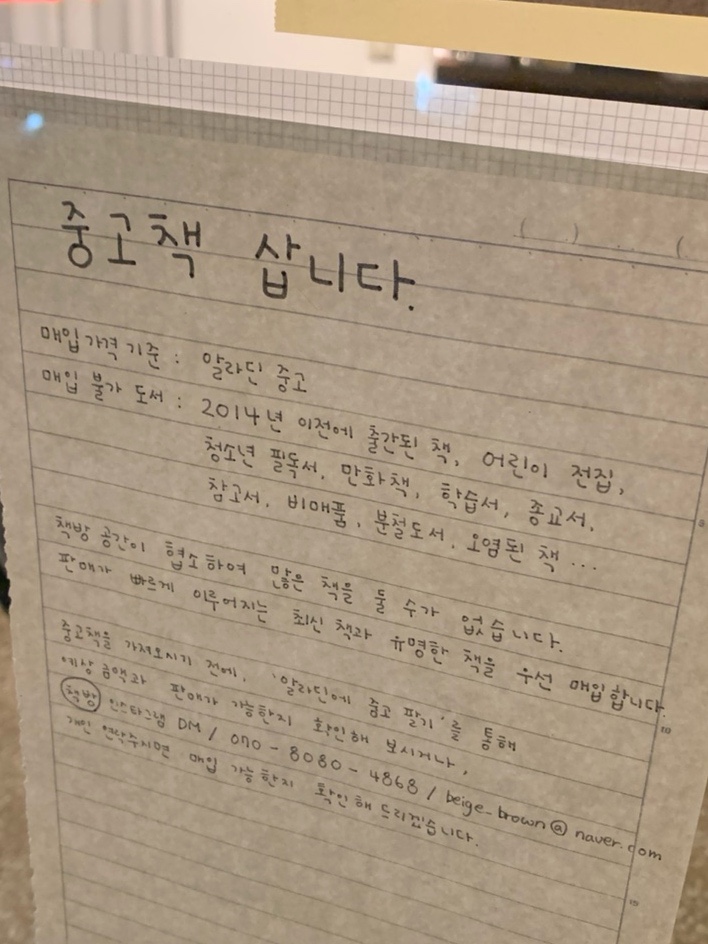 중고책 삽니다.
매입가격 기준 : 알라딘 중고
매입 불가 도서 : 2014년 이전에 출간된 책, 어린이 전집,
청소년 필독서, 만화책, 학습서, 종교서,
참고서, 비매품, 분철도서, 오염된 책 ...
책방 공간이 협소하여 많은 책을 둘 수가 없습니다.
판매가 빠르게 이루어지는 최신 책과 유명한 책을 우선 매입합니다.
중고책을 가져오시기 전에, '알라딘에 중고 팔기'를 통해
예상 금액과 판매가 가능한지 확인해 보시거나,
책방 인스타그램 DM / 070-8080-4868 / beige_brown@naver.com
개인 연락주시면 매입 가능한지 확인해 드리겠습니다.